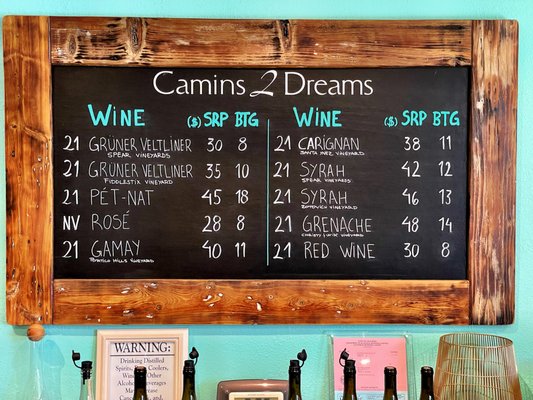 Camins 2 Dreams
WINE ($) SRP BTG
21 GRÜNER VELTLINER 30 8
SPEAR VINEYARDS
21 GRÜNER VELTLINER 35 10
FIDDLESTIX VINEYARD
21 PÉT-NAT 45 18
NV ROSÉ 28 8
21 GAMAY 40 11
VINEYARD
WINE ($) SRP BTG
21 CARIGNAN 38 11
SANTA YNEZ VINEYARD
21 SYRAH 42 12
SPEAR VINEYARDS
21 SYRAH 46 13
ZOTOVICH VINEYARD
21 GRENACHE 48 14
VINEYARD
21 RED WINE 30 8
WARNING:
Drinking Distilled
Spirits, Coolers,
Other Alcoholic